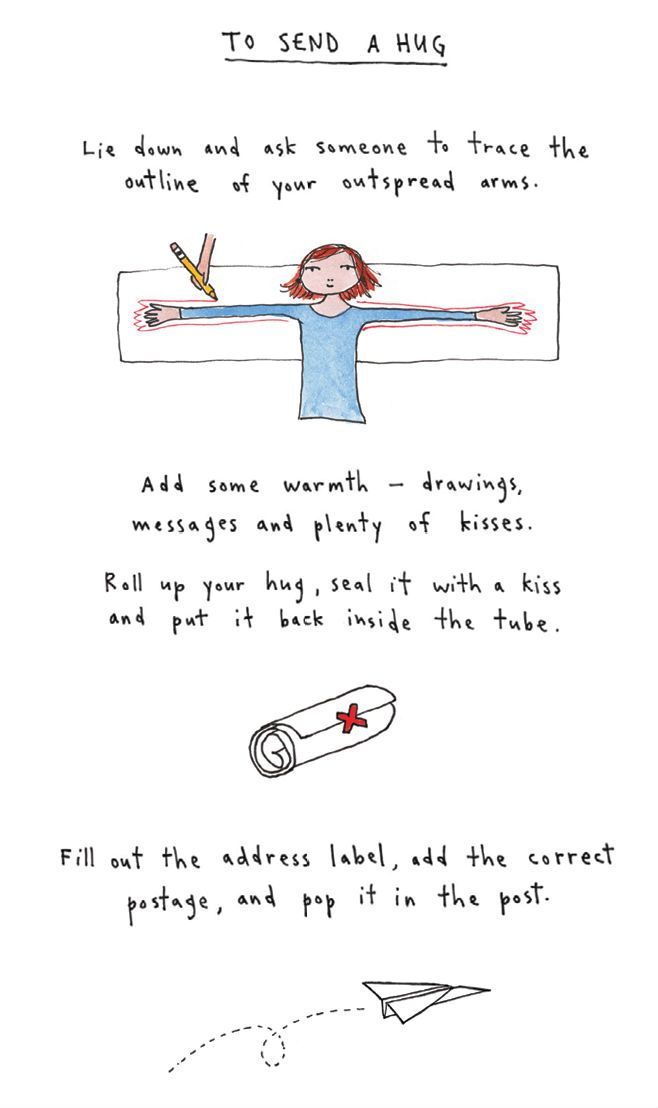 TO SEND A HUG
Lie down and ask someone to trace the
outline of your outspread arms.
Add some warmth – drawings,
messages and plenty of kisses.
Roll up your hug, seal it with a kiss
and put it back inside the tube.
Fill out the address label, add the correct
postage, and pop it in the post.